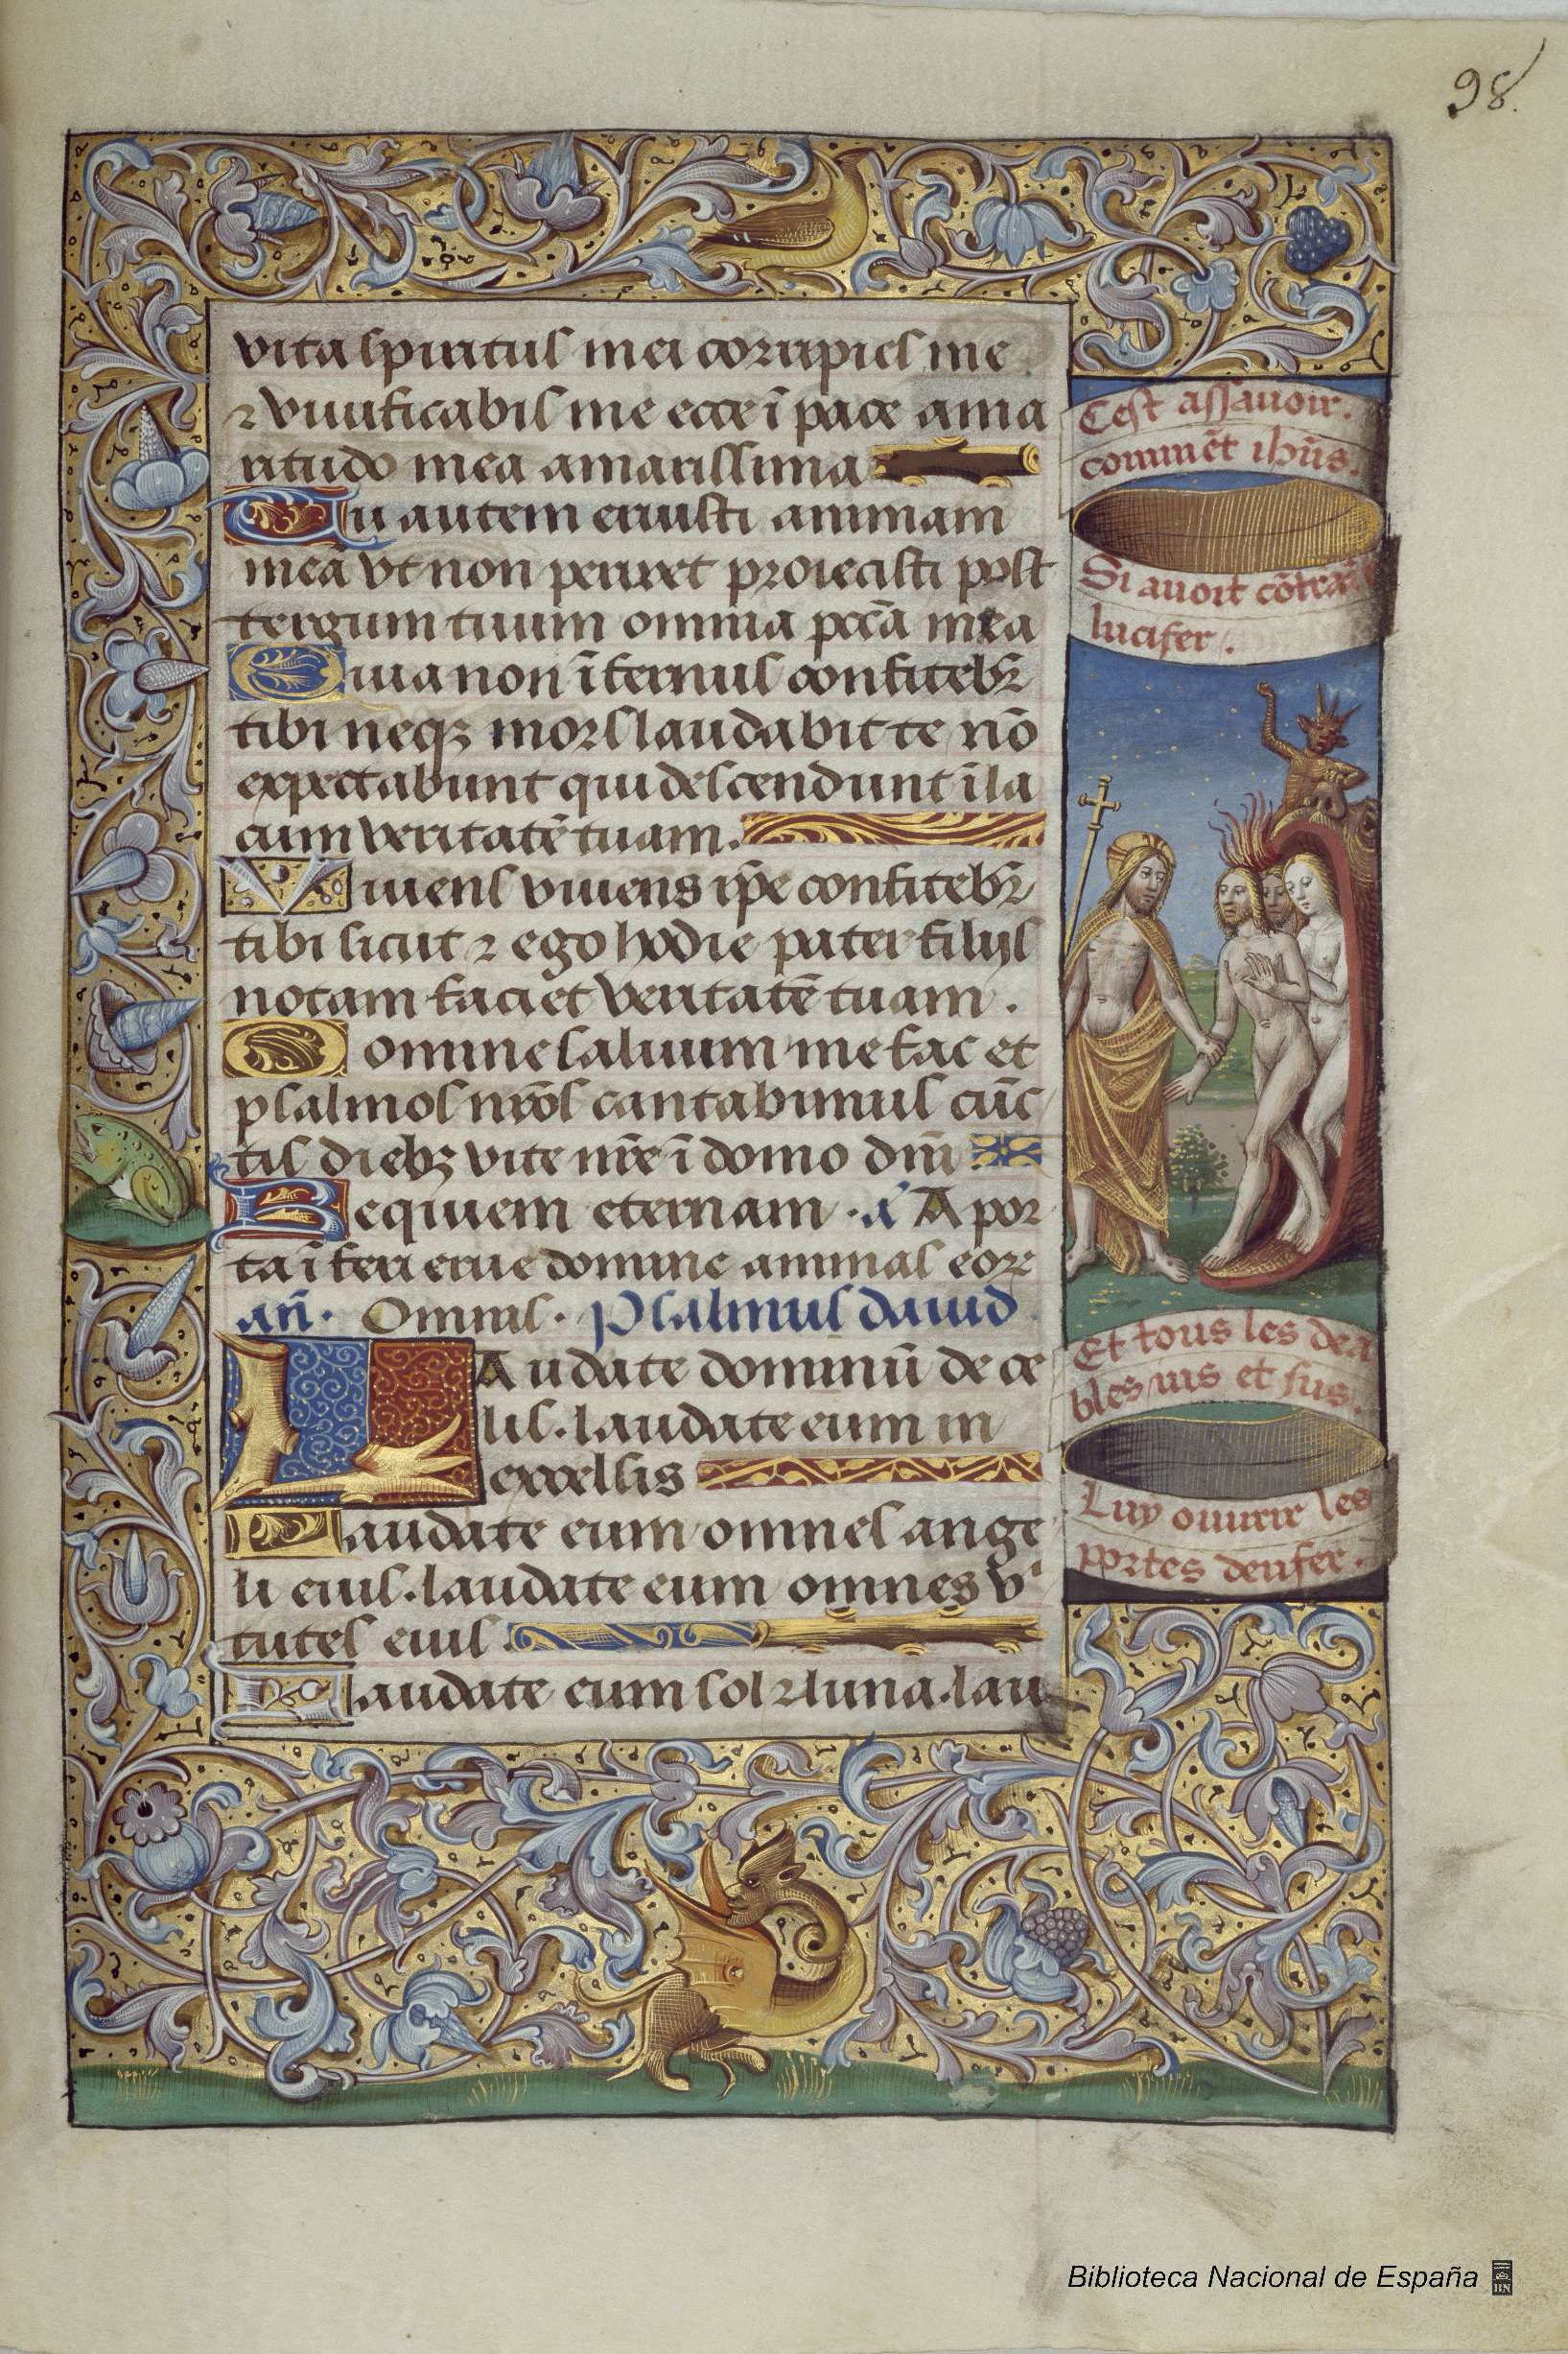 98.
vita spiritus mei corripies me
⁊ viuificabis me ecce ī pace ama
ritudo mea amarissima
Tu autem eruisti animam
meā vt non periret proiecisti post
tergum tuum omnia pccā mea
Quia non īfernus confitebr̄
tibi neqꝫ mors laudabit te nō
expectabunt qui descendunt ī la
cum veritatē tuam.
Viuens viuens ip̄e confitebr̄
tibi sicut ⁊ ego hodie pater filijs
notam faciet veritatē tuam.
Domine saluum me fac et
psalmos nr̄os cantabimus cūc
tis diebꝫ vite nr̄e ī domo dn̄i
Requiem eternam. a A por
ta īferi erue domine animas eoꝝ
an̄. Omnis. Psalmus dauid
Laudate dominū de ce
lis. laudate eum in
excelsis
Laudate eum omnes ange
li eius. laudate eum omnes vⁱ
tutes eius.
Laudate eum sol ⁊ luna. lau
Cest assauoir.
commēt ihūs.
Si auoit
lucifer.
Et tous les dea
bles uis et sus.
Luy ouurir les
portes denfer.
Biblioteca Nacional de España